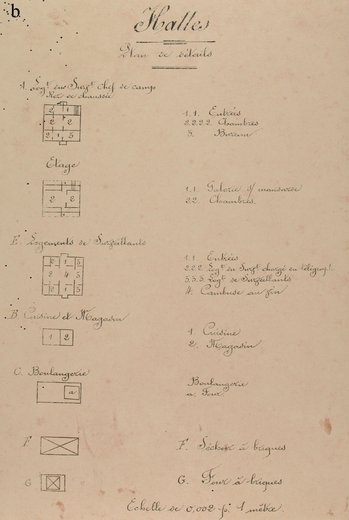 b
Halles
Plan de détails
A. Log.t du Surv.t chef de camp
Rez de chaussée
1.1. Entrées
2.2.2.2. Chambres
3. Bureau
Etage
1.1 Galerie s/ mansarde
2.2. Chambres.
E. Logements de Surveillants
1.1. Entrées
2.2.2. Log.t du Surv.t chargé du télégr.
3.3.3. Log.t de Surveillants
4. Cambuse au vin
B. Cuisine et Magasin
1 2
1. Cuisine
2. Magasin
C. Boulangerie
a
Boulangerie
a Four
F
F. Séchoir à briques
G
G. Four à briques
Echelle de 0,002 p. 1 mètre.